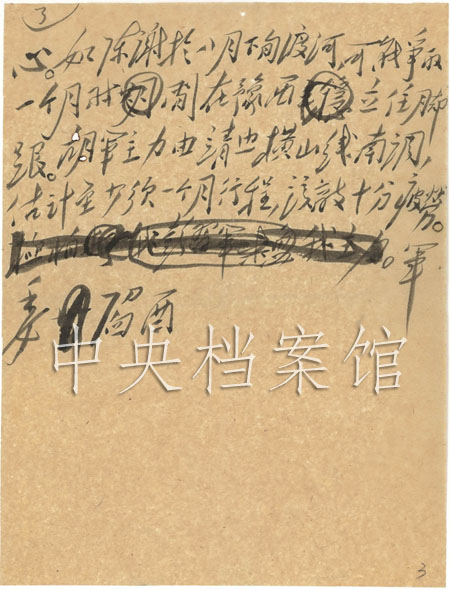 3
心。如陈谢于八月下旬渡河,可战争取
一个月时间,在豫西立住脚
跟。胡军主力由清边横山线南调,
估计至少须一个月行程,该敌十分疲劳。
军
委
酉
中央档案馆
3